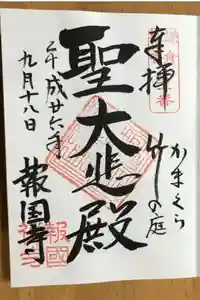 奉拝
かまくら
竹の庭
聖大悲殿
平成廿六年
九月十八日
報国寺